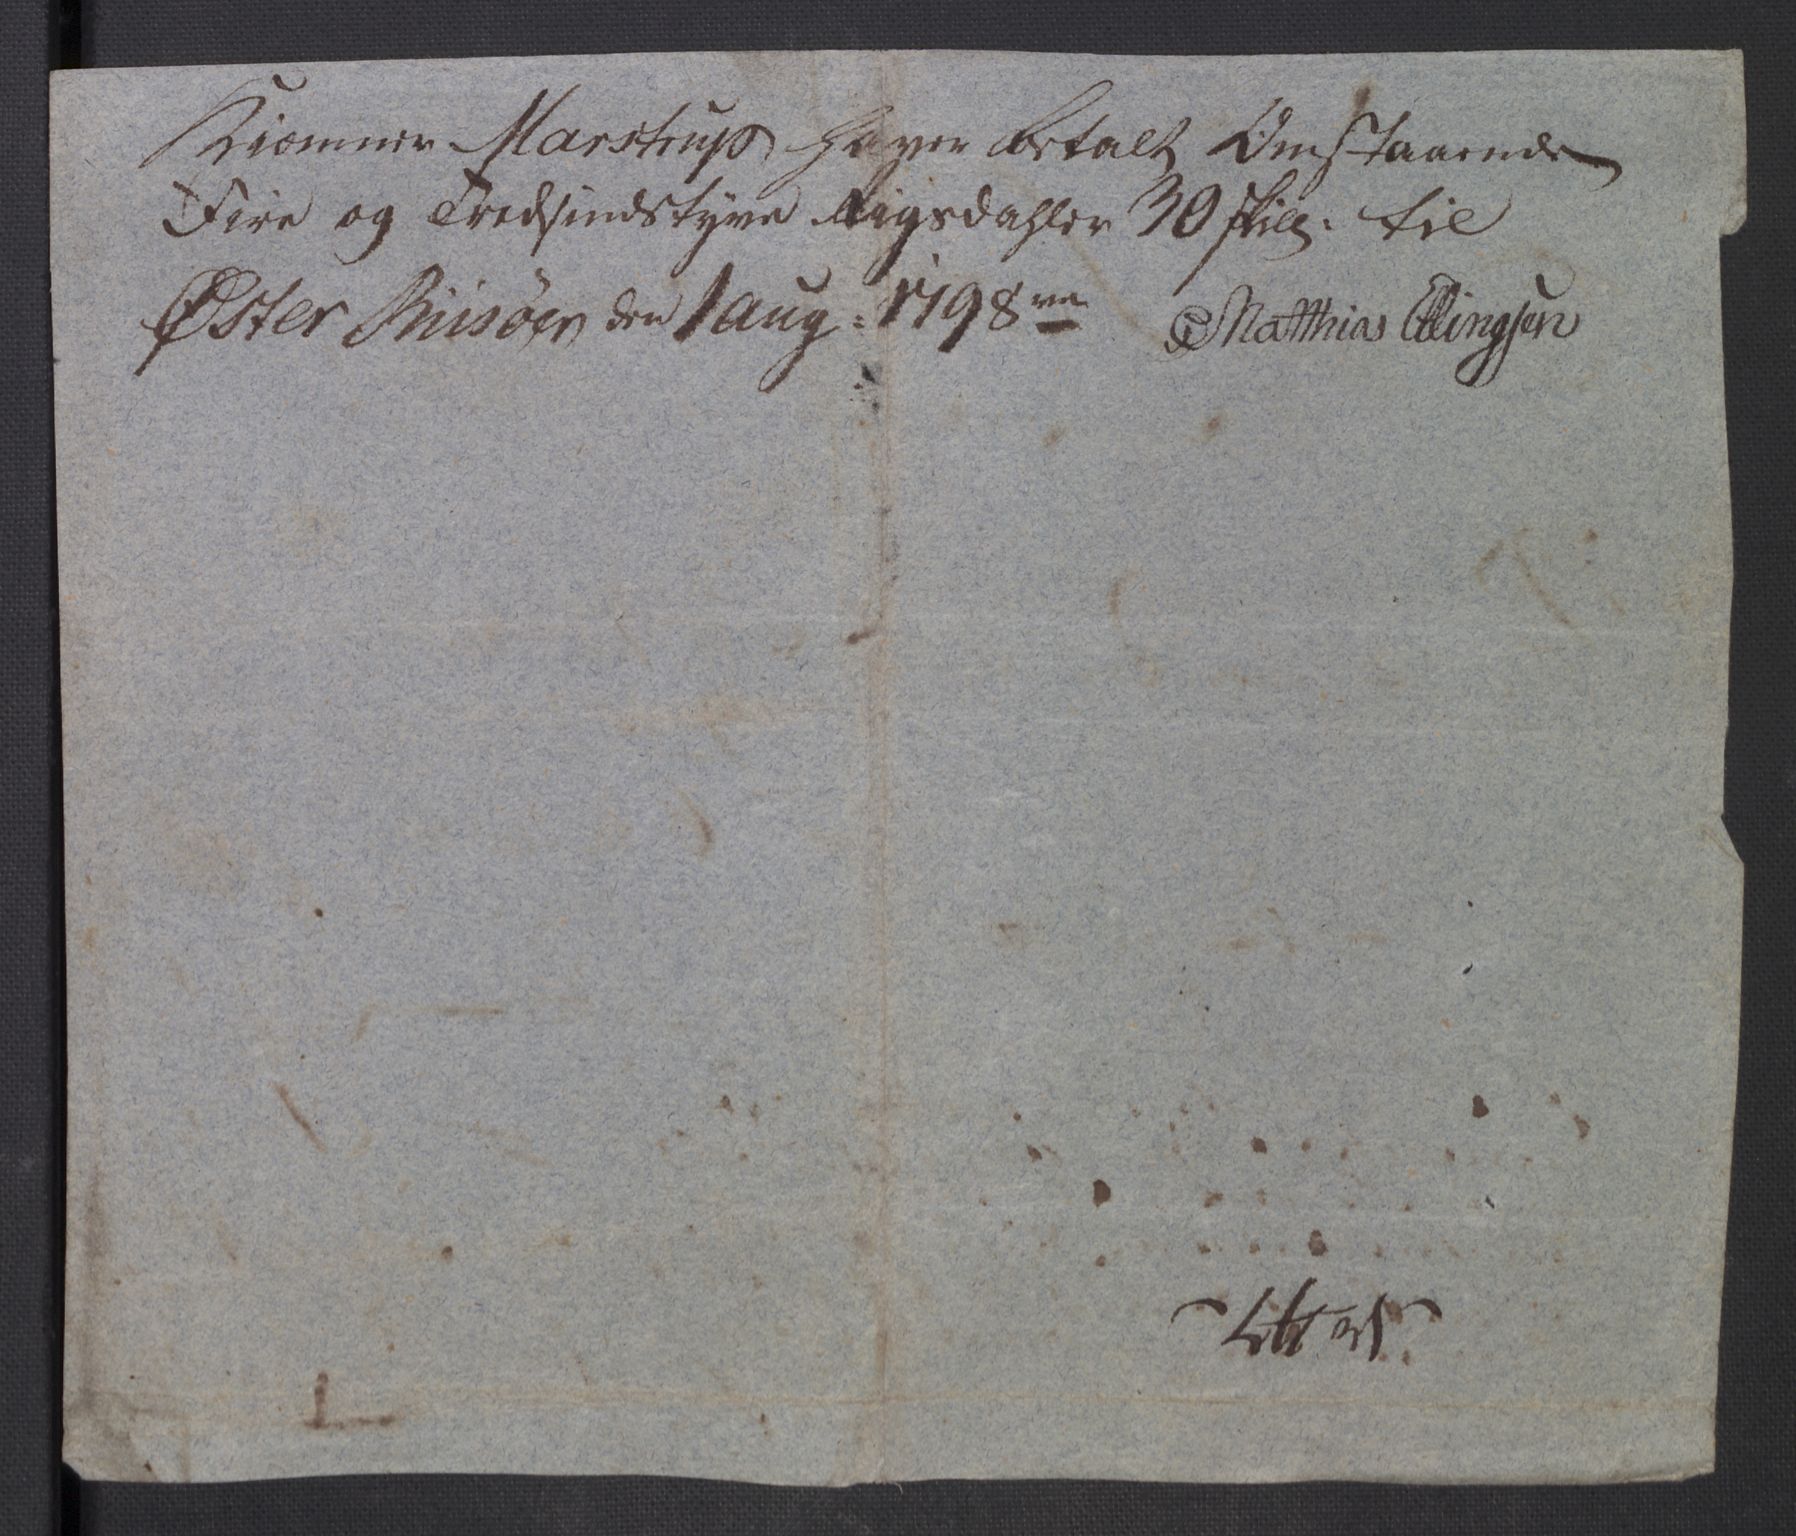 Kiæmner Marstrup haver betalt Omstaaende
Fire og Tredsindstyve Rigsdahler 30 skill: til
Øster Riisöer den 1 Aug: 1798
Matthias Ellingsen